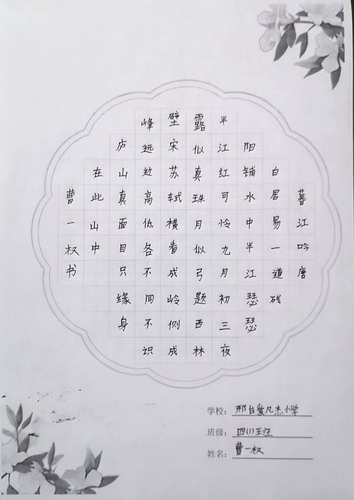 暮江吟唐
白居易一道残
阳铺水中半江瑟瑟
半江红可怜九月初三夜
露似真珠月似弓题西林
壁宋苏轼横看成岭侧成
峰远近高低各不同不识
庐山真面目只缘身
在此山中
曹一权书
学校：小学
班级：
姓名：曹一权